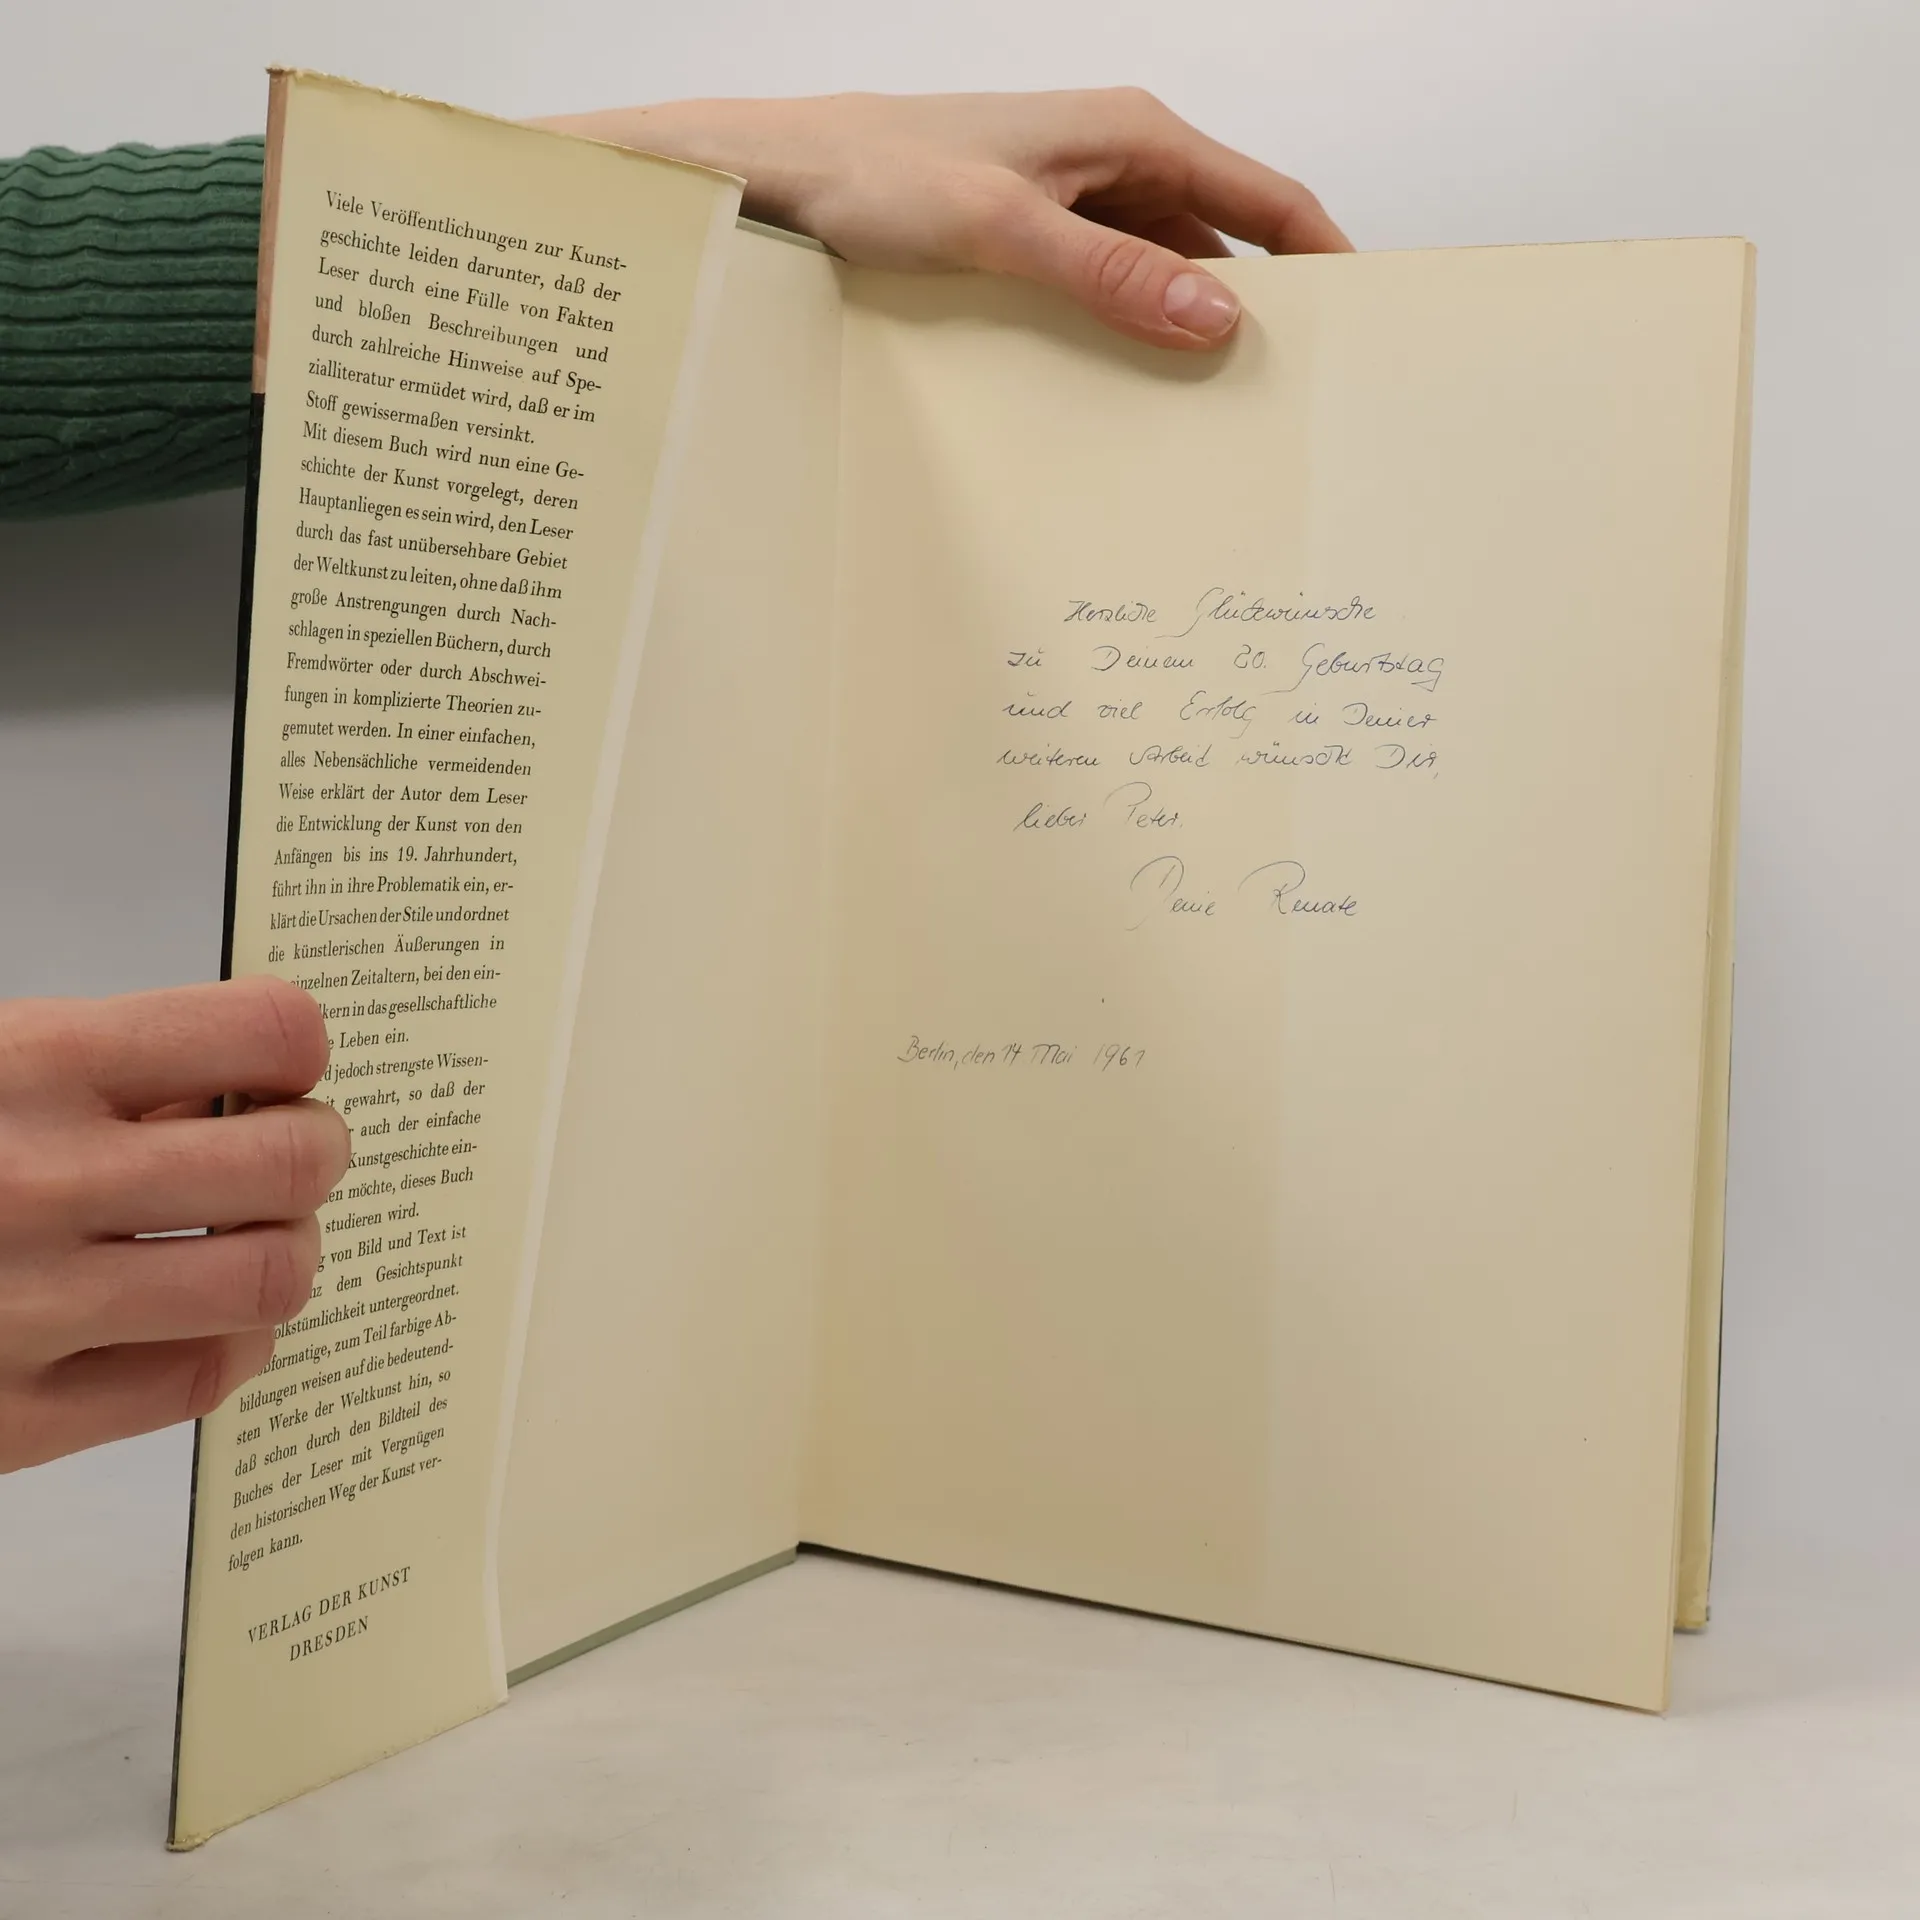 Viele Veröffentlichungen zur Kunst-
geschichte leiden darunter, daß der
Leser durch eine Fülle von Fakten
und bloßen Beschreibungen und
durch zahlreiche Hinweise auf Spe-
zialliteratur ermüdet wird, daß er im
Stoff gewissermaßen versinkt.
Mit diesem Buch wird nun eine Ge-
schichte der Kunst vorgelegt, deren
Hauptanliegen es sein wird, den Leser
durch das fast unübersehbare Gebiet
der Weltkunst zu leiten, ohne daß ihm
große Anstrengungen durch Nach-
schlagen in speziellen Büchern, durch
Fremdwörter oder durch Abschwei-
fungen in komplizierte Theorien zu-
gemutet werden. In einer einfachen,
alles Nebensächliche vermeidenden
Weise erklärt der Autor dem Leser
die Entwicklung der Kunst von den
Anfängen bis ins 19. Jahrhundert,
führt ihn in ihre Problematik ein, er-
klärt die Ursachen der Stile und ordnet
die künstlerischen Äußerungen in
einzelnen Zeitaltern, bei den ein-
kern in das gesellschaftliche
Leben ein.
jedoch strengste Wissen-
gewahrt, so daß der
auch der einfache
Kunstgeschichte ein-
möchte, dieses Buch
studieren wird.
von Bild und Text ist
dem Gesichtspunkt
olkstümlichkeit untergeordnet.
formatige, zum Teil farbige Ab-
bildungen weisen auf die bedeutend-
sten Werke der Weltkunst hin, so
daß schon durch den Bildteil des
Buches der Leser mit Vergnügen
den historischen Weg der Kunst ver-
folgen kann.
VERLAG DER KUNST
DRESDEN
Herzliche Glückwünsche
zu Deinem 20. Geburtstag
und viel Erfolg in Deiner
weiteren Arbeit wünscht Dir,
lieber Peter.
Deine Renate
Berlin, den 14 Mai 1961